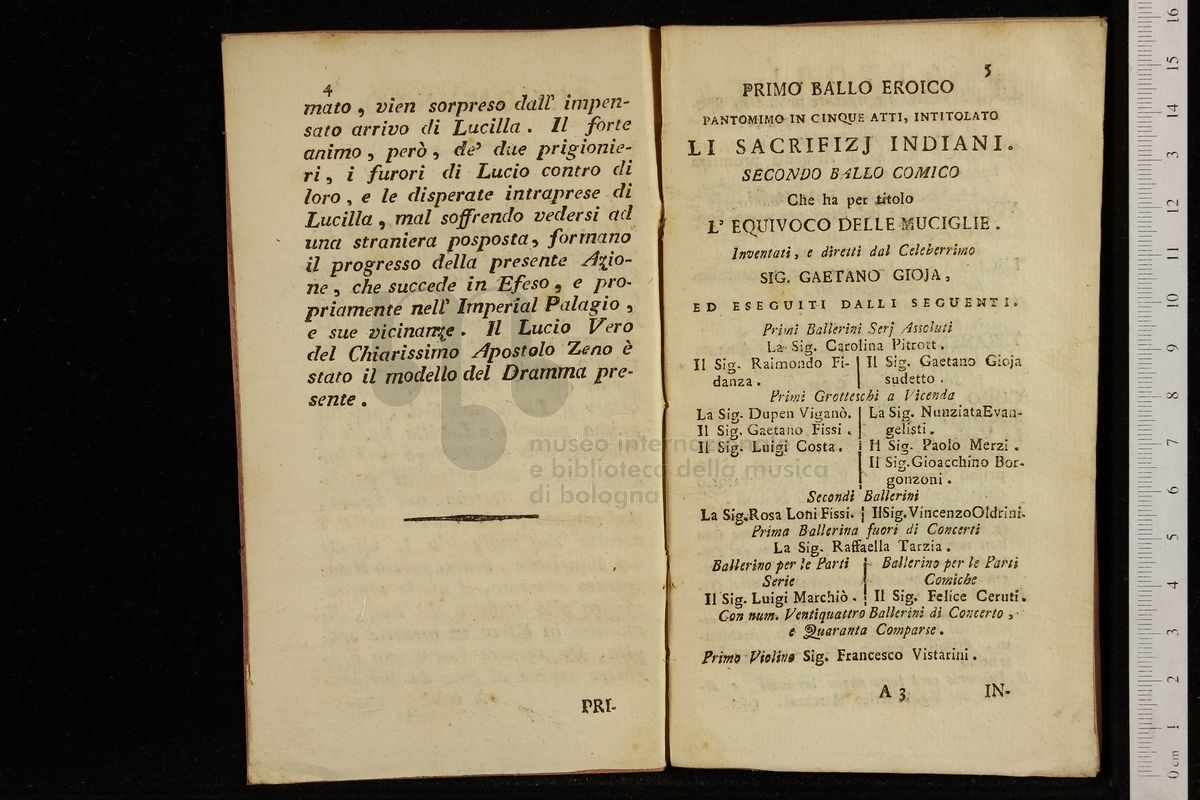 4
mato, vien sorpreso dall' impen-
sato arrivo di Lucilla. Il forte
animo, però, de' due prigionie-
ri, i furori di Lucio contro di
loro, e le disperate intraprese di
Lucilla, mal soffrendo vedersi ad
una straniera posposta, formano
il progresso della presente Azio-
ne, che succede in Efeso, e pro-
priamente nell' Imperial Palagio,
e sue vicinanze. Il Lucio Vero
del Chiarissimo Apostolo Zeno è
stato il modello del Dramma pre-
sente.
PRI-
museo internazionale
e biblioteca della musica
di bologna
5
PRIMO BALLO EROICO
PANTOMIMO IN CINQUE ATTI, INTITOLATO
LI SACRIFIZJ INDIANI.
SECONDO BALLO COMICO
Che ha per titolo
L' EQUIVOCO DELLE MUCIGLIE.
Inventati, e diretti dal Celeberrimo
SIG. GAETANO GIOJA,
ED ESEGUITI DALLI SEGUENTI.
Primi Ballerini Serj Assoluti
La Sig. Carolina Pitrott.
Il Sig. Raimondo Fi-
danza.
Il Sig. Gaetano Gioja
sudetto.
Primi Grotteschi a Vicenda
La Sig. Dupen Viganò.
Il Sig. Gaetano Fissi.
Il Sig. Luigi Costa.
La Sig. Nunziata Evan-
gelisti.
Il Sig. Paolo Merzi.
Il Sig. Gioacchino Bor-
gonzoni.
Secondi Ballerini
La Sig. Rosa Loni Fissi. Il Sig. Vincenzo Oldrini.
Prima Ballerina fuori di Concerti
La Sig. Raffaella Tarzia.
Ballerino per le Parti
Serie
Il Sig. Luigi Marchiò.
Ballerino per le Parti
Comiche
Il Sig. Felice Ceruti.
Con num. Ventiquattro Ballerini di Concerto,
e Quaranta Comparse.
Primo Violino Sig. Francesco Vistarini.
A 3
IN-
0 cm 1 2 3 4 5 6 7 8 9 10 11 12 3 14 15 16